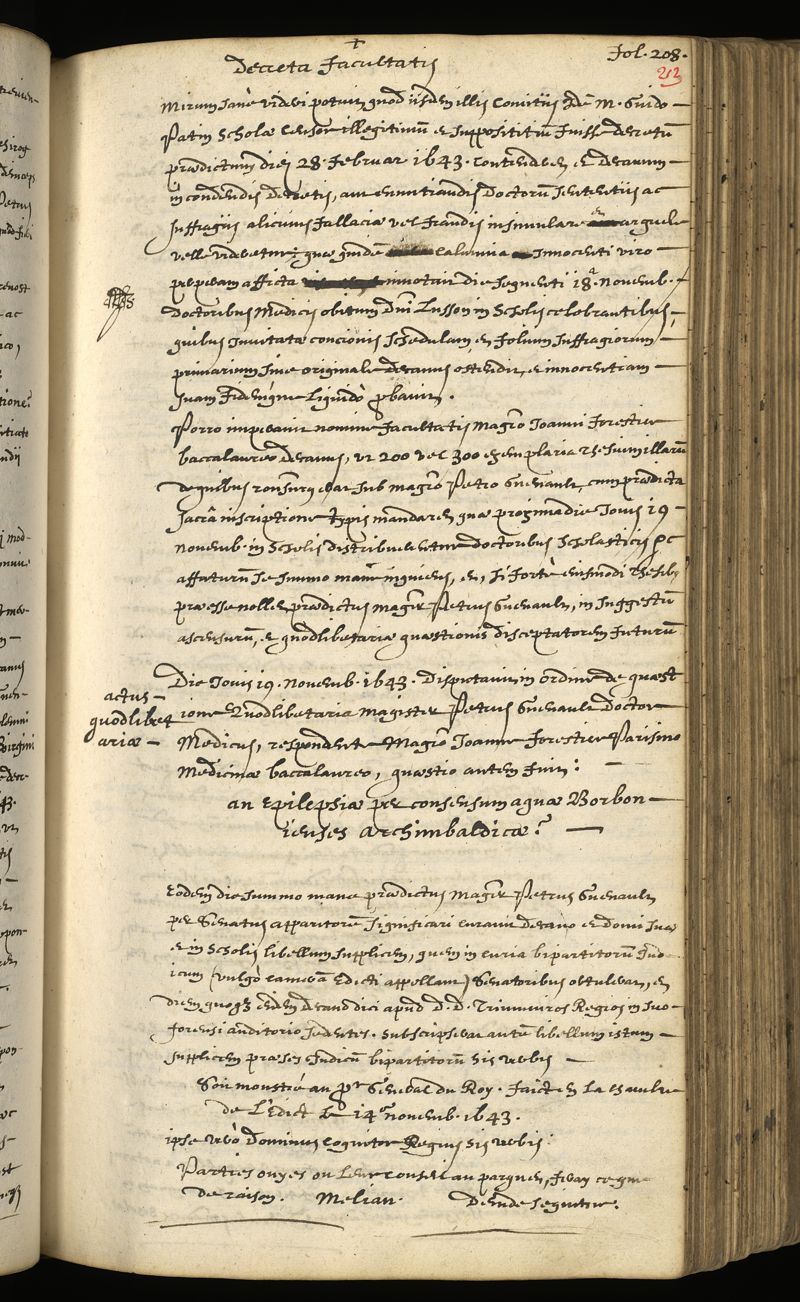 Decreta Facultatis
Fol. 208.
213
Mirum sane videri potuit, quod iisdem illis Comitiis Idē M. Guido
Patin Scholæ Censor illegitimū et supposititiū fuisse decretū
prædictum diei 28. Februar 1643. contenderet et decanum
in condendis decretis, aut enuntiandis Doctorū sententiis ac
suffragiis alicuius fallaciæ vel fraudis insimulare et arguere
velle videretur: quæ quidē calumnia innocenti viro
perperam afficta innotuit die sequenti 18ª. Novemb.
Doctoribus Medicis obitum Dni Lusson in Scholis celebrantibus,
quibus invitatæ concionis schedulam, et folium suffragiorum
primarium sive originale decanus ostendit, et innocentiam
suam fidemque liquidò pbavit.
Porro imperavit nomine facultatis Magro Joanni Forestier
baccalaureo decanus, ut 200 vel 300 exemplaria theseωn illarū
de quibus consurgebat sub magro Petro Guenault, cum prædicta
sacrâ inscriptione typis mandaret, quæ proxima die Jovis 19
Novemb. in Scholis distribuerentur doctoribus Scholasticis &c
affaturū se summo mane inquiens, et, si fortè eiusmodi thesibꝫ
præesse nollet prædictus magr Petrus Guenault, in suggestū
ascensurū, et quodlibetariæ quæstionis disceptatorem futurū
actus
quodlibet
ariæ
Die Jovis 19. Novemb. 1643. Disputavit in ordine de quæst
ione Quodlibetaria Magister Petrus Guenault Doctor
Medicus, respondente Magro Joanne Forestier Parisino
Medicinæ baccalaureo, quæstio autem fuit:
an Epilepsiæ per consensum aquæ Borbon
ienses archimbaldicæ?
Eodem die summo mane prædictus Magr Petrus Guenault
per Senatus apparitorē significari curavit decano et domi suæ
et in Scholis libellum supplicem, quem in curia bipartitorū Jud
icum (vulgò camerā Edicti appellant) Senatoribus obtulerat, et
diem quoqꝫ eidem decano dici apud D. D. Triumviros Regios in suo
forensi auditorio sedentes. subscripserat autē libellum istum
supplicem præses Judicū bipartitorū his verbis
Soit monstré au pr General du Roy. Faict en La chambre
de L'Edict le 14e novemb. 1643.
ipse verò Dominus cognitor Regius his verbis:
Parties ouyes ou leur conseil au parquet, feray ce que
de raison. Melian. Deinde sequitur.